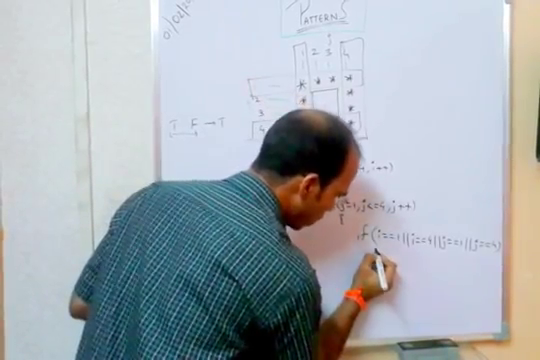 01/02/20
PATTERNS
j
1 2 3 4
* * * *
2 * *
3 *
4 *
T F → T
, i++)
(j=1, j<=4, j++)
{
if (i==1||i==4||j==1||j==4)